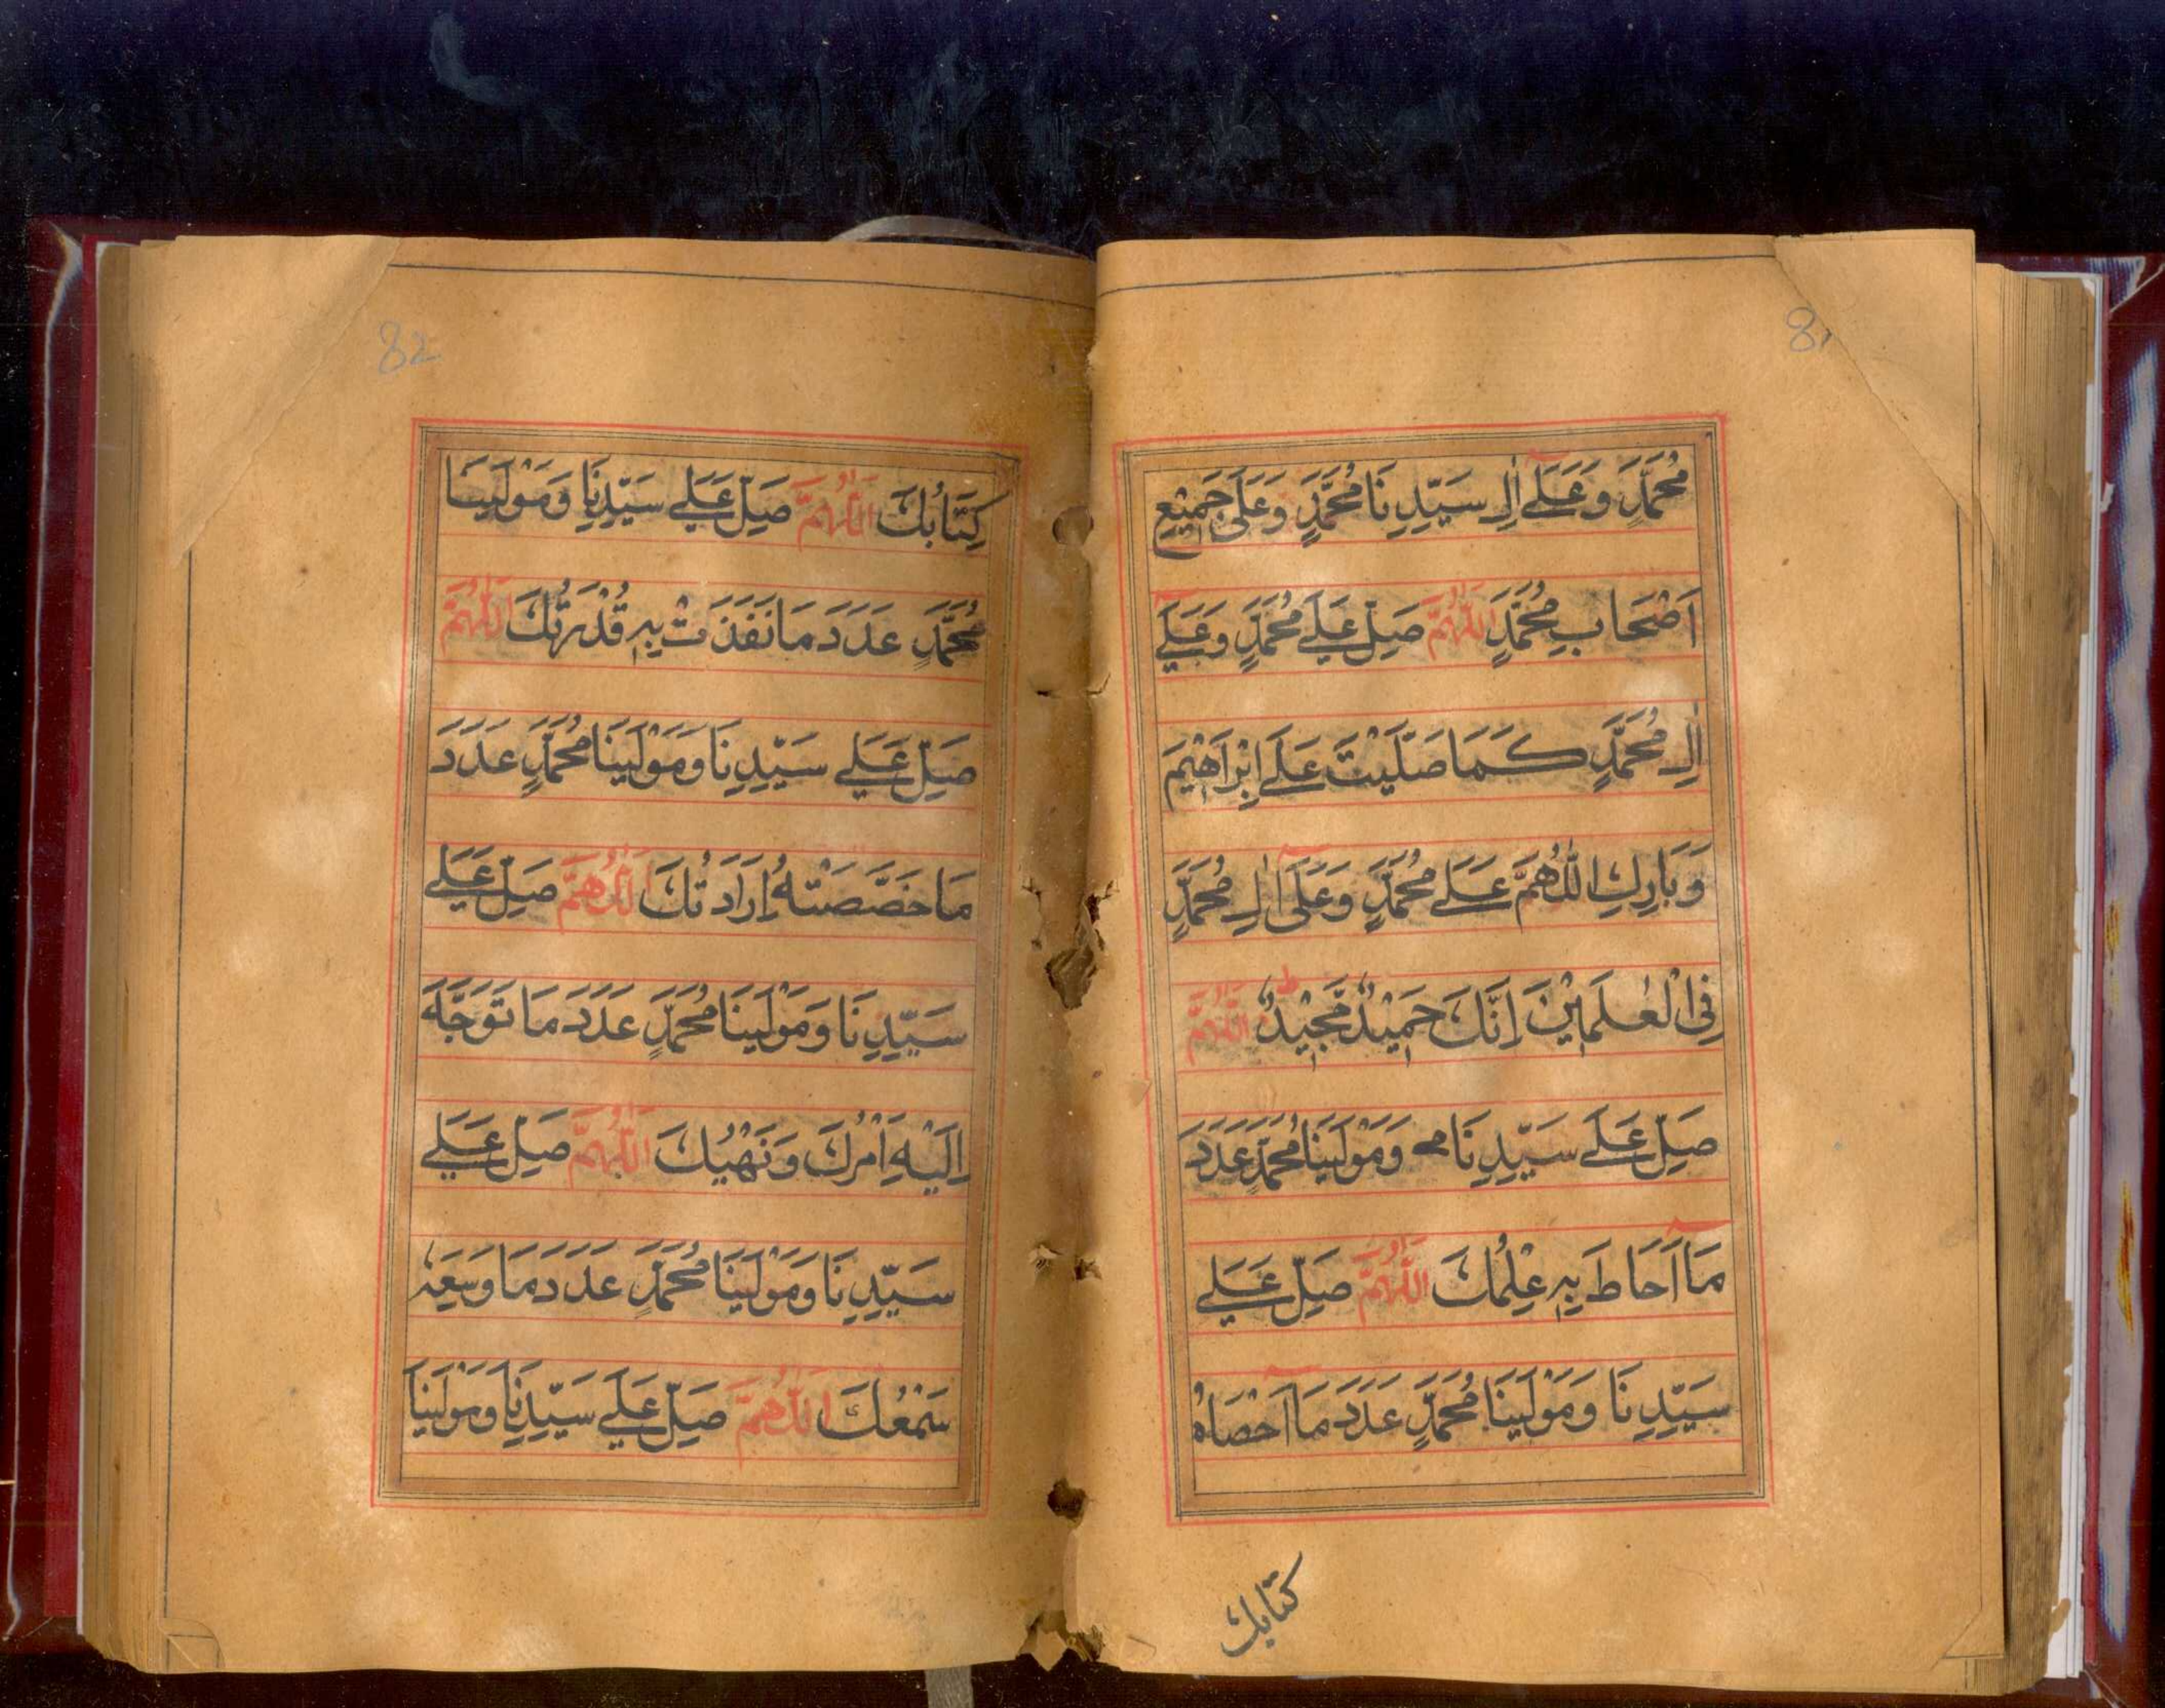 81
مُحَمَّدٍ وَعَلَے اٰلِ سَيِّدِنَا مُحَمَّدٍ وَعَلٰی جَمِيْعِ
اَصْحَابِ مُحَمَّدٍ اَللّٰهُمَّ صَلِّ عَلَے مُحَمَّدٍ وَعَلَے
اٰلِ مُحَمَّدٍ كَمَا صَلَّيْتَ عَلَے اِبْرَاهِيْمَ
وَبَارِكِ اللّٰهُمَّ عَلَے مُحَمَّدٍ وَعَلٰی اٰلِ مُحَمَّدٍ
فِی الْعٰلَمِيْنَ اِنَّكَ حَمِيْدٌ مَّجِيْدٌ ط اَللّٰهُمَّ
صَلِّ عَلَے سَيِّدِنَا مح وَمَوْلٰينَا مُحَمَّدٍ عَدَدَ
مَا اَحَاطَ بِهٖ عِلْمُكَ اَللّٰهُمَّ صَلِّ عَلَے
سَيِّدِنَا وَمَوْلٰينَا مُحَمَّدٍ عَدَدَ مَا اَحْصَاهُ
كتابك
82
كِتَابُكَ اَللّٰهُمَّ صَلِّ عَلَے سَيِّدِنَا وَمَوْلٰينَا
مُحَمَّدٍ عَدَدَ مَا نَفَذَتْ بِهٖ قُدْرَتُكَ اَللّٰهُمَّ
صَلِّ عَلَے سَيِّدِنَا وَمَوْلٰينَا مُحَمَّدٍ عَدَدَ
مَا خَصَّصَتْهُ اِرَادَتُكَ اَللّٰهُمَّ صَلِّ عَلَے
سَيِّدِنَا وَمَوْلٰينَا مُحَمَّدٍ عَدَدَ مَا تَوَجَّهَ
اِلَيْهِ اَمْرُكَ وَنَهْيُكَ اَللّٰهُمَّ صَلِّ عَلَے
سَيِّدِنَا وَمَوْلٰينَا مُحَمَّدٍ عَدَدَ مَا وَسِعَهٗ
سَمْعُكَ اَللّٰهُمَّ صَلِّ عَلَے سَيِّدِنَا وَمَوْلٰينَا